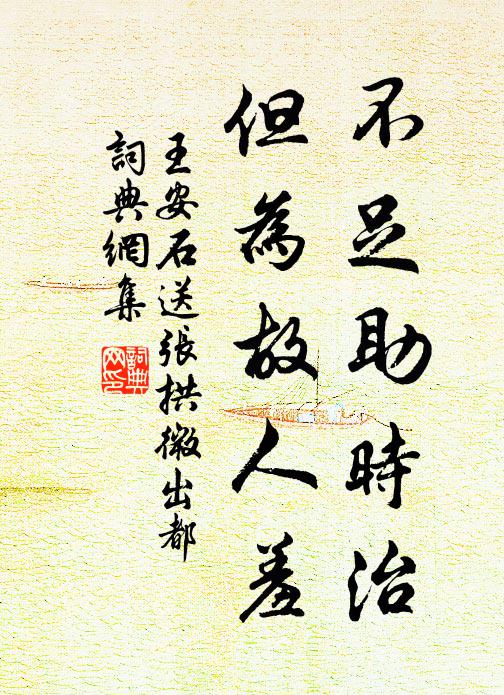 不足助時治
但為故人羞
王安石送張拱微出都
詞典網集
詞典网印